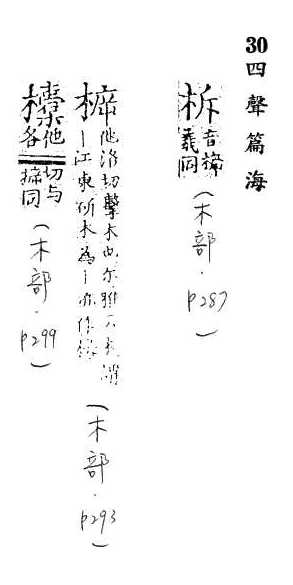 30四聲篇海
柝音義同(木部.p287)
他洛切擊木也尔雅云木謂
—江東斫木為—亦作
(木部.p293)
欜他各切与同(木部.p299)